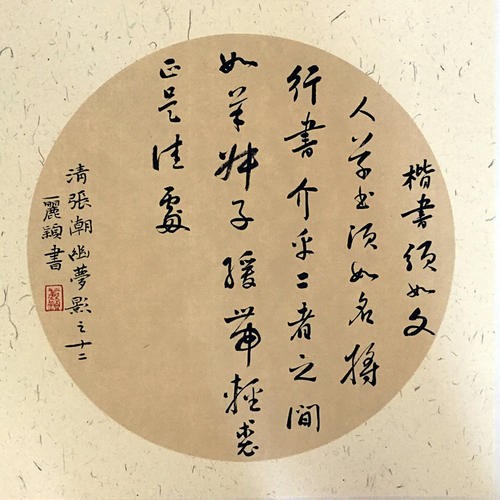 楷書須如文
人草書須如名將
行書介乎二者之間
如羊叔子緩帶輕裘
正是佳處
清張潮幽夢影之十二
麗穎書